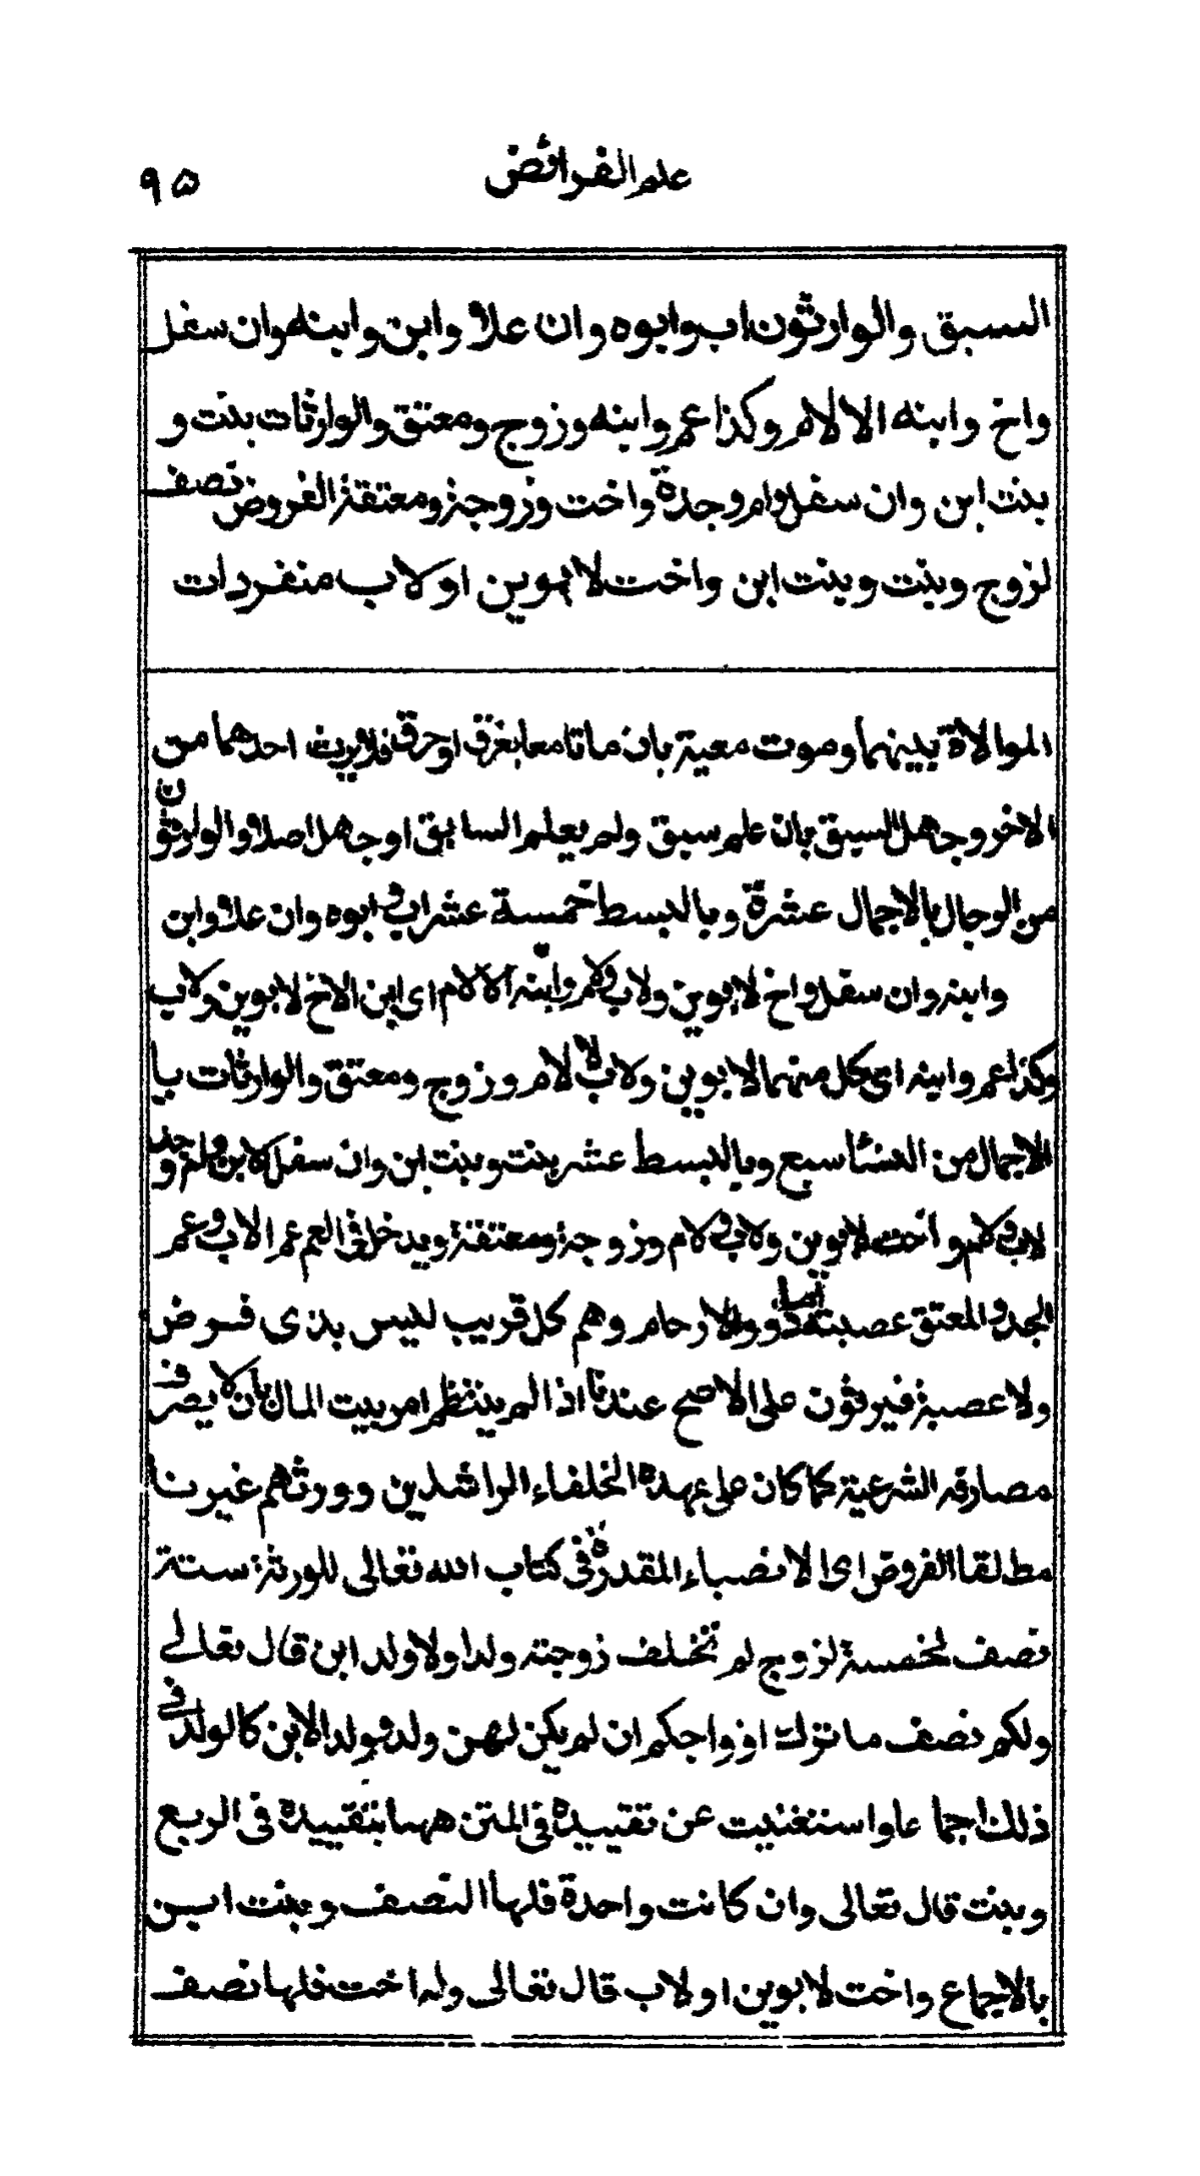 علم الفرائض
٩٥
السبق والوارثون اب وابوه وان علا وابن وابنه وان سفل
واخ وابنه الا لام وكذا عم وابنه وزوج ومعتق والوارثات بنت و
بنت ابن وان سفل وام وجدة واخت وزوجة ومعتقة الفروض نصف
لزوج وبنت وبنت ابن واخت لابوين او لاب منفردات
الموالاة بينهما وموت معية بان ماتا معا بغرق او حرق فلا يرث احدهما من
الاخر وجهل السبق بان علم سبق ولم يعلم السابق او جهل اصلا والوارثون
من الرجال بالاجمال عشرة وبالبسط خمسة عشر اب وابوه وان علا وابن
وابنه وان سفل واخ لابوين ولاب ولام وابنه الا لام اى ابن الاخ لابوين ولاب
وكذا عم وابنه اى كل منهما لابوين ولاب لا لام وزوج ومعتق والوارثات با
لاجمال من النساء سبع وبالبسط عشر بنت وبنت ابن وان سفل كابن وام وجدة
لاب ولام واخت لابوين ولاب ولام وزوجة ومعتقة ويدخل فى العم عم الاب وعم
الجد والمعتق عصبته اما ذوو الارحام وهم كل قريب ليس بذى فرض
ولا عصبة فيرثون على الاصح عندنا اذا لم ينتظم امر بيت المال بان لا يصرف
مصارفه الشرعية كما كان على عهدة الخلفاء الراشدين وورثهم غيرنا
مطلقا الفروض اى الانصباء المقدرة فى كتاب الله تعالى للورثة ستة
نصف لخمسة لزوج لم تخلف زوجته ولدا ولا ولد ابن قال تعالى
ولكم نصف ما ترك ازواجكم ان لم يكن لهن ولد وولد الابن كالولد فى
ذلك اجماعا واستغنيت عن تقييده فى المتن ههنا بتقييده فى الربع
وبنت قال تعالى وان كانت واحدة فلها النصف وبنت ابن
بالاجماع واخت لابوين او لاب قال تعالى وله اخت فلها نصف